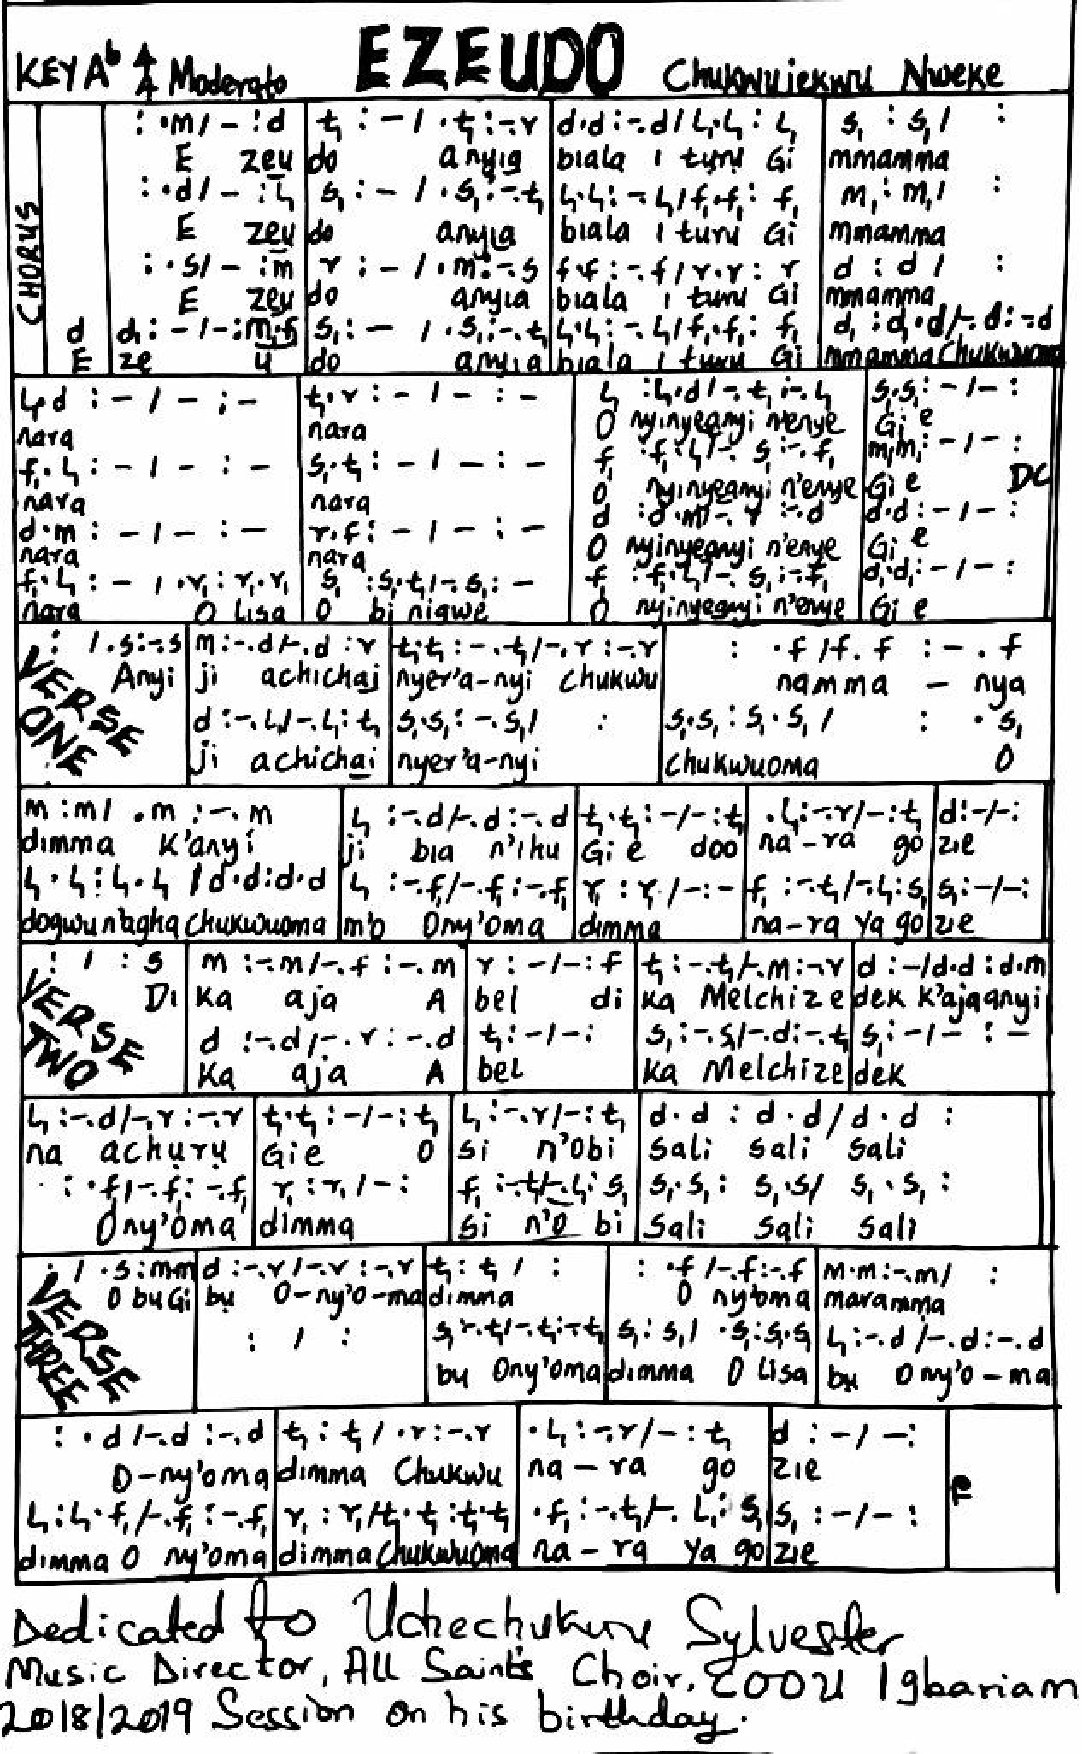 EZEUDO
KEY Aᵇ 4/4 Moderato Chukwujekwu Nweke
CHORUS
: ·m/ – : d | t, : – / ·t, : -·r | d·d : -·d / l,·l, : l, | s, : s, / :
E zeu | do anyịa | biala ị tụrụ Gi | mmamma
: ·d / – : l, | s, : – / ·s, : -·t, | l,·l, : -·l, / f,·f, : f, | m, : m, / :
E zeu | do anyịa | biala ị tụrụ Gi | mmamma
: ·s / – : m | r : – / ·m : -·s | f·f : -·f / r·r : r | d : d / :
E zeu | do anyịa | biala ị tụrụ Gi | mmamma
d | d, : – / – : m,·f, | s, : – / ·s, : -·t, | l,·l, : -·l, / f,·f, : f, | d, : d,·d / -·d : -·d
E | ze u | do anyịa | biala ị tụrụ Gi | mmamma Chukwuoma
l,·d : – / – : – | t,·r : – / – : – | l, : l,·d / -·t, : -·l, | s,·s, : – / – :
nara | nara | O nyinyeanyi n'enye | Gi e
f,·l, : – / – : – | s,·t, : – / – : – | f, : f,·l, / -·s, : -·f, | m,·m, : – / – :
nara | nara | O nyinyeanyi n'enye | Gi e DC
d·m : – / – : – | r·f : – / – : – | d : d·m / -·r : -·d | d·d : – / – :
nara | nara | O nyinyeanyi n'enye | Gi e
f,·l, : – / ·r, : r,·r, | s, : s,·t, / -·s, : – | f, : f,·l, / -·s, : -·f, | d,·d, : – / – :
nara O lisa | O bi nigwe | O nyinyeanyi n'enye | Gi e
VERSE ONE
: / ·s : -·s | m : -·d / -·d : r | t,·t, : -·t, / -·r : -·r | : ·f / f·f : -·f
Anyi | ji achichaị | nyer'a-nyi chukwu | namma – nya
d : -·l, / -·l, : t, | s,·s, : -·s, / : | s,·s, : s,·s, / : ·s,
ji achichai | nyer'a-nyi | chukwuoma O
m : m / ·m : -·m | l, : -·d / -·d : -·d | t,·t, : – / – : t, | ·l, : -·r / – : t, | d : – / – :
dimma K'anyi | ji bia n'ihu | Gi e doo | na-ra go | zie
l,·l, : l,·l, / d·d : d·d | l, : -·f, / -·f, : -·f, | r, : r, / – : – | f, : -·t, / -·l, : s, | s, : – / – :
dogwu n'agha chukwuoma | m'o Ony'oma | dimma | na-ra ya go | zie
VERSE TWO
: / : s | m : -·m / -·f : -·m | r : – / – : f | t, : -·t, / -·m : -·r | d : – / d·d : d·m
Di | Ka aja A | bel di | ka Melchize | dek k'ajaanyi
d : -·d / -·r : -·d | t, : – / – : | s, : -·s, / -·d : -·t, | s, : – / – : –
Ka aja A | bel | ka Melchize | dek
l, : -·d / -·r : -·r | t,·t, : – / – : t, | l, : -·r / – : t, | d·d : d·d / d·d :
na achụrụ | Gie O | si n'obi | sali sali sali
: ·f, / -·f, : -·f, | r, : r, / – : | f, : -·t, / -·l, : s, | s,·s, : s,·s, / s,·s, :
Ony'oma | dimma | si n'o bi | sali sali sali
VERSE THREE
: / ·s : mm | d : -·r / -·r : -·r | t, : t, / : | : ·f / -·f : -·f | m·m : -·m / :
O bu Gi | bụ O-ny'o-ma | dimma | O ny'oma | maramma
: / : | s, r·t, / -·t, : -·t, | s, : s, / ·s, : s,·s, | l, : -·d / -·d : -·d
bu Ony'oma | dimma O Lisa | bụ O ny'o-ma
: ·d / -·d : -·d | t, : t, / ·r : -·r | ·l, : -·r / – : t, | d : – / – :
O-ny'oma | dimma Chukwu | na-ra go | zie
l, : l,·f, / -·f, : -·f, | r, : r, / t,·t, : t,·t, | ·f, : -·t, / -·l, : s, | s, : – / – :
dimma O ny'oma | dimma Chukwuoma | na-ra ya go | zie
Dedicated to Uchechukwu Sylvester
Music Director, All Saints Choir, COOU Igbariam
2018/2019 Session on his birthday.